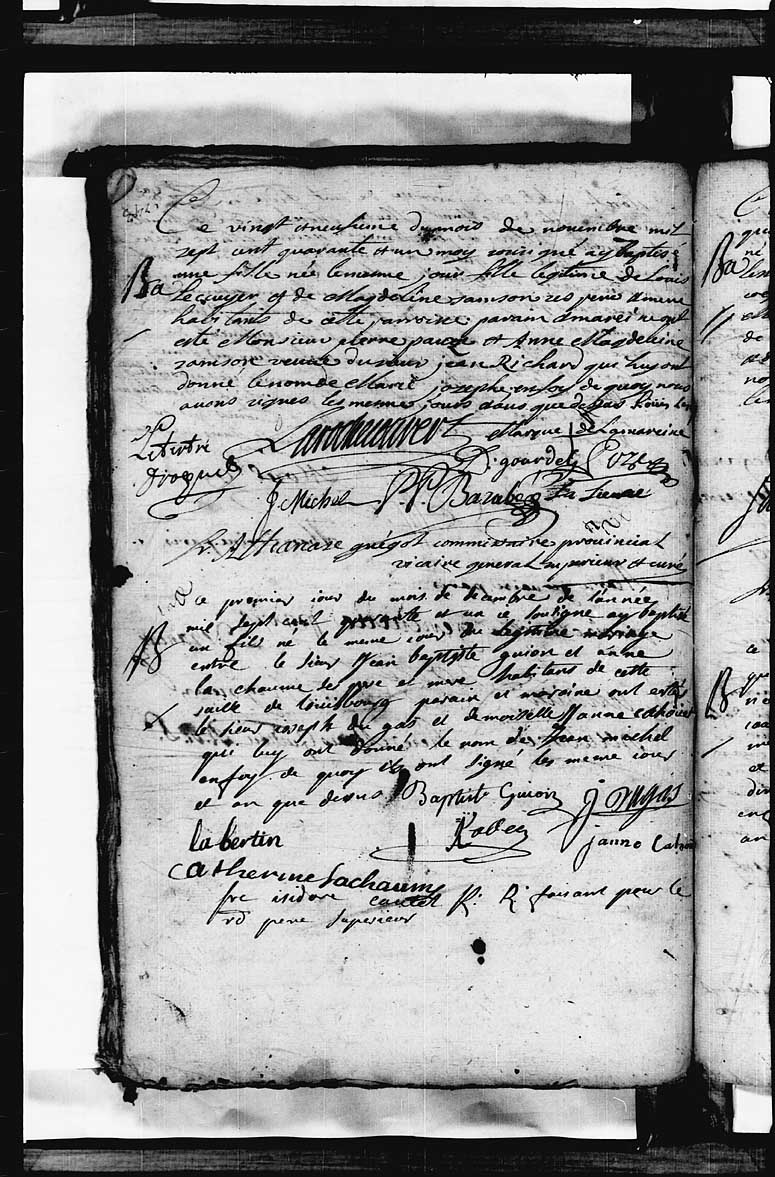 Ce vingt et neusieme du mois de novembre mil
sept cent quarante et un moy sousigné ay Baptisé
Ba
une fille née le meme jour fille legitime de Louis
Lecuyer et de Magdeleine samson ses pere et mere
habitants de cette paroisse parain et mareine ont
esté Monsieur pierre et Anne Magdeleine
samson veuve du sieur jean Richard qui luy ont
donné le nom de Marie josephe en foy de quoy nous
avons signes les meme jours et ans que dessus
Larocheouvert Marque de La mareine
D. gourdet
J Michel P. P. Barabe
fr. Athanase guégot commissaire provincial
vicaire general superieur et curé
ce premier iour du mois de decembre de lannée
mil sept cent quarante et un ie soutigné ay baptisé
B
un fils né le meme iour du legitime mariage
entre le sieur Jean baptiste guion et anne
la chaume ses pere et mere habitans de cette
ville de louisbourg parain et maraine ont estés
le sieur ioseph du gas et demoiselle Jeanne
qui luy ont donné le nom de Jean michel
en foy de quoy ils ont signé les meme iour
et an que desus Baptiste Guion j Dugas
la bertin
janne
Catherine Lachaume
fre isidore caulet R. R. faisant pour le
rd pere superieur